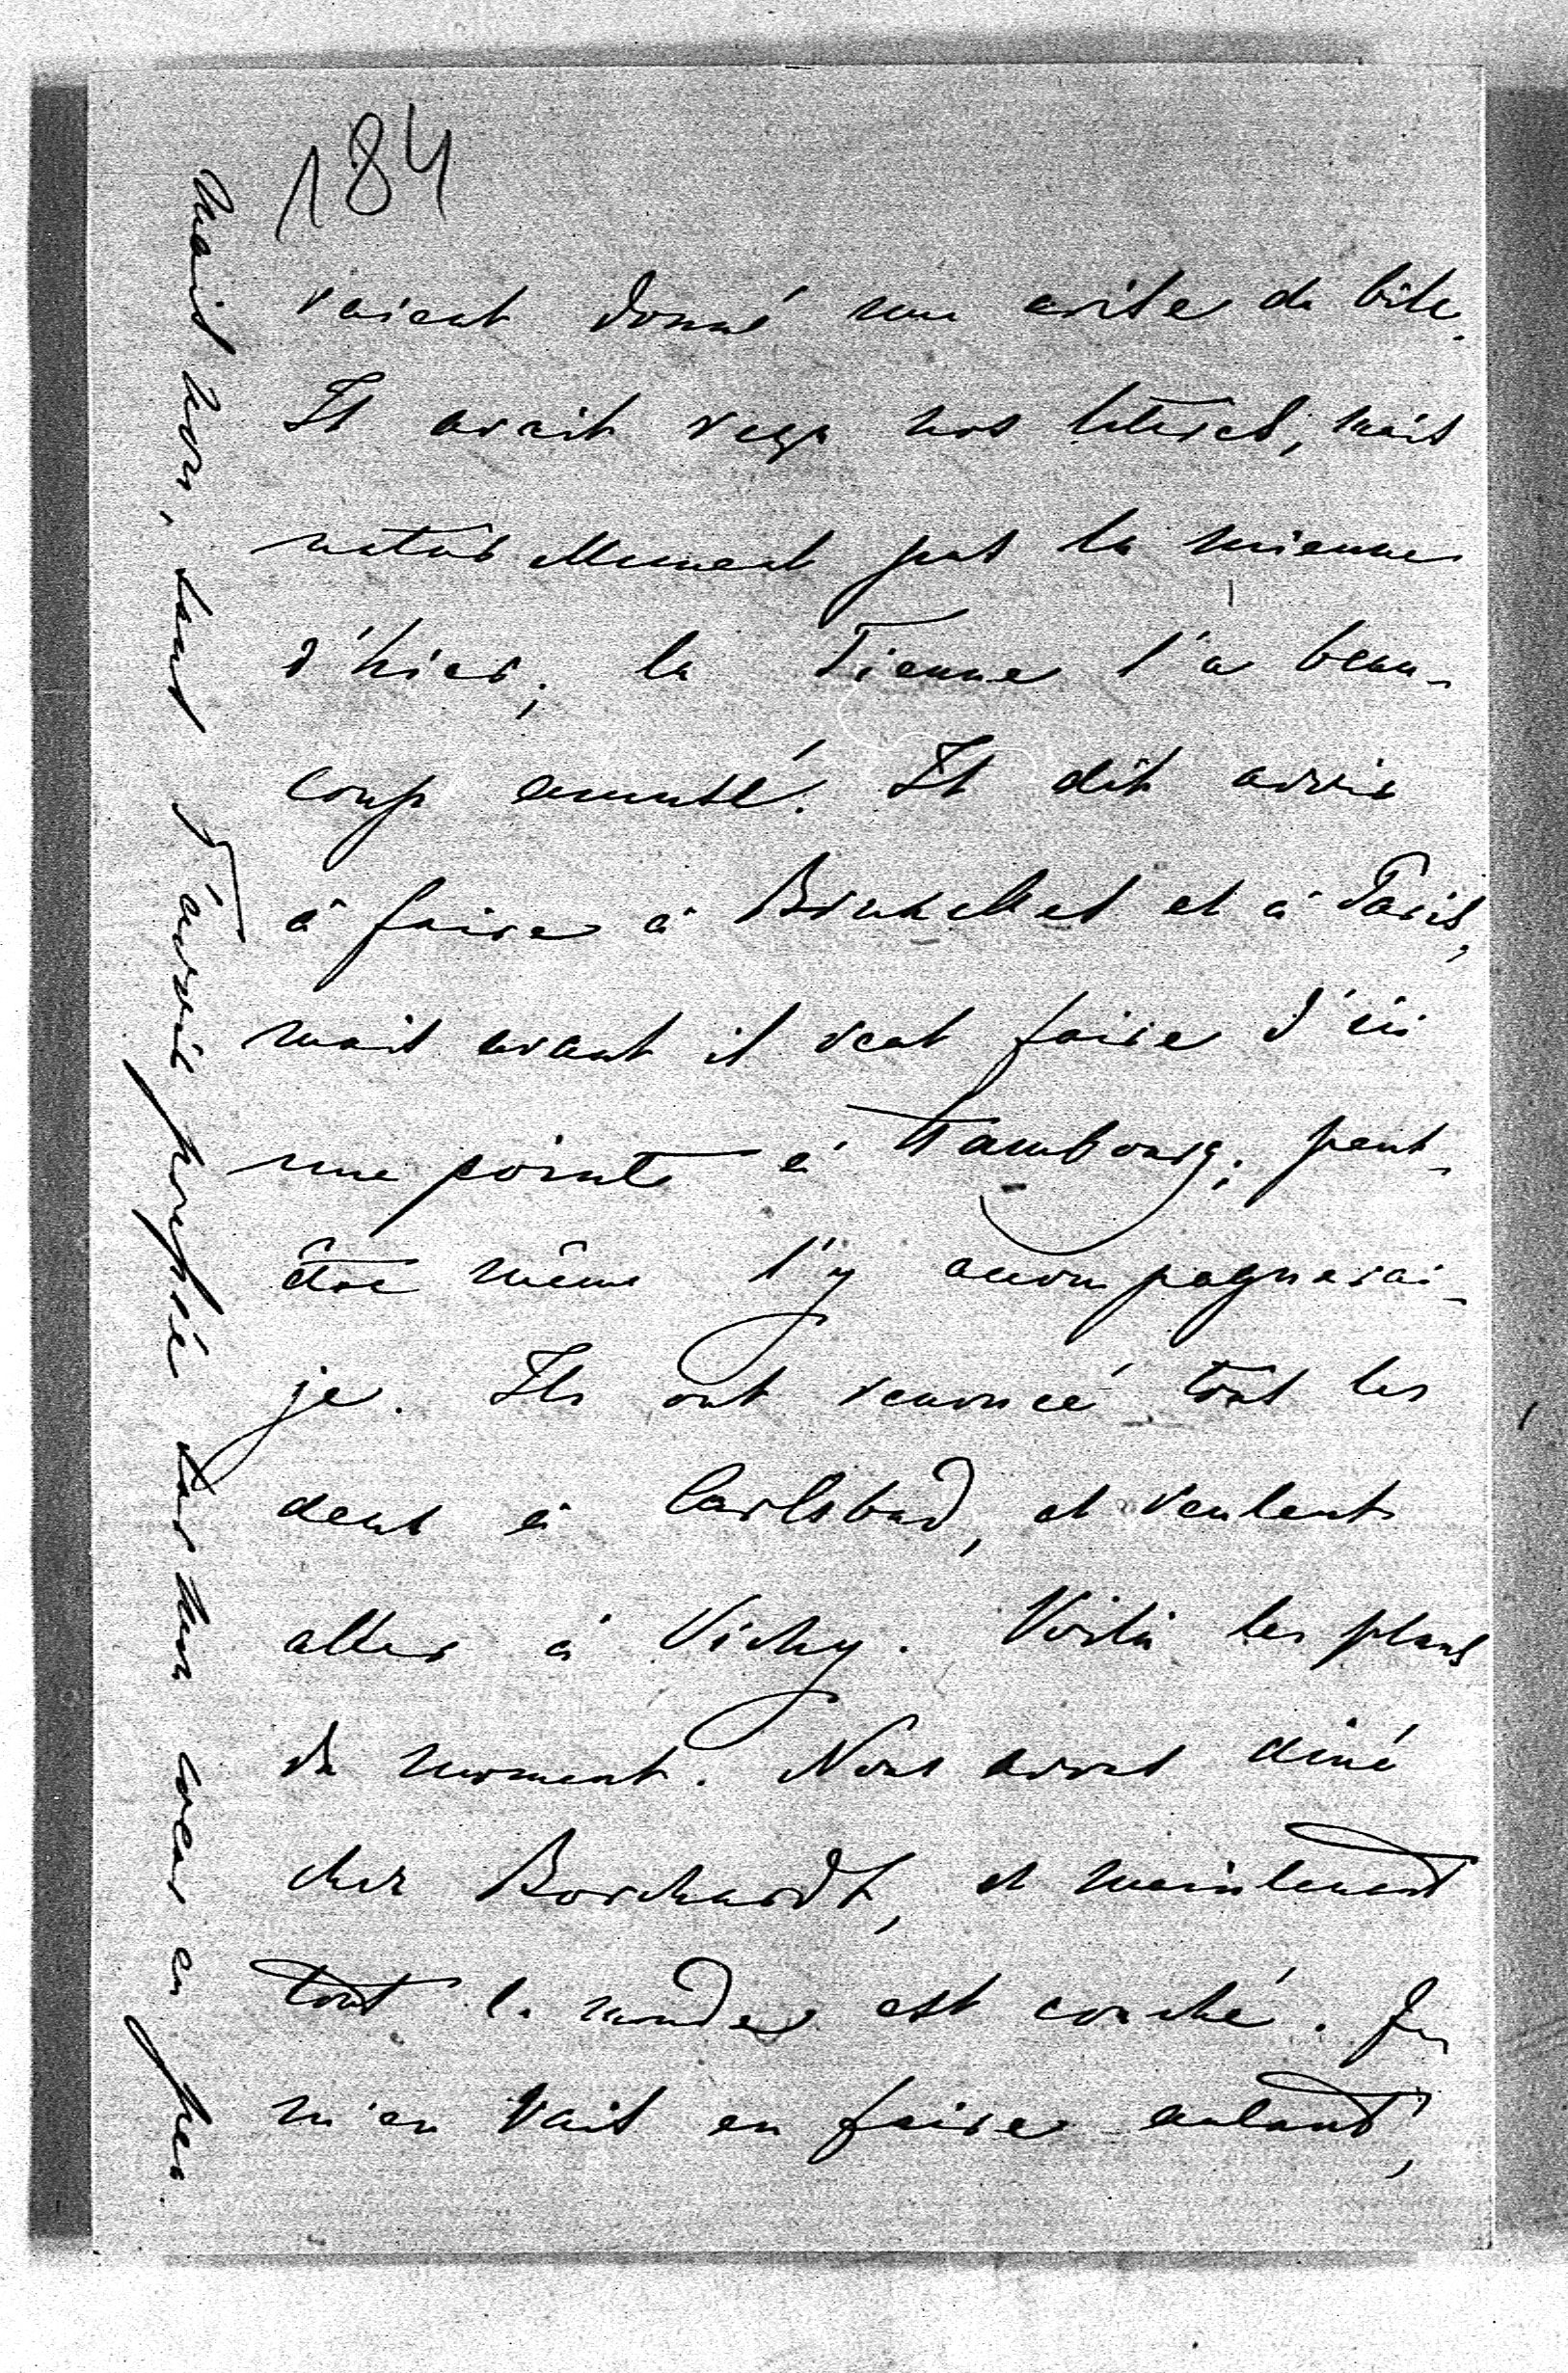 184
vaient donné une crise de bile.
Il avait reçu nos lettres, mais
naturellement pas la mienne
d'hier; la Tienne l'a beau-
coup amusé. Il dit avoir
à faire à Bruxelles et à Paris,
mais avant il veut faire d'ici
une pointe à Hambourg; peut-
être même l'y accompagnerai-
je. Ils ont renoncé tous les
deux à Carlsbad, et veulent
aller à Vichy. Voilà les plans
du moment. Nous avons diné
chez Borchardt, et maintenant
tout le monde est couché. Je
m'en vais en faire autant,
mais non, sans T'avoir pressé sur mon coeur un peu